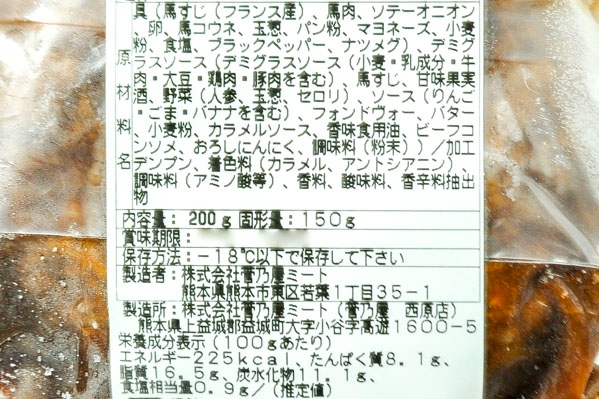 具（馬すじ（フランス産）、馬肉、ソテーオニオン
、卵、馬コウネ、玉葱、パン粉、マヨネーズ、小麦
粉、食塩、ブラックペッパー、ナツメグ）、デミグ
ラスソース（デミグラスソース（小麦・乳成分・牛
肉・大豆・鶏肉・豚肉を含む）、馬すじ、甘味果実
酒、野菜（人参、玉葱、セロリ）、ソース（りんご
・ごま・バナナを含む）、フォンドヴォー、バター
、小麦粉、カラメルソース、香味食用油、ビーフコ
ンソメ、おろしにんにく、調味料（粉末））／加工
デンプン、着色料（カラメル、アントシアニン）、
調味料（アミノ酸等）、香料、酸味料、香辛料抽出
物
原材料名
内容量：200ｇ固形量：150ｇ
賞味期限：
保存方法：－18℃以下で保存して下さい
製造者：株式会社菅乃屋ミート
熊本県熊本市東区若葉1丁目35－1
製造所：株式会社菅乃屋ミート（菅乃屋　西原店）
熊本県上益城郡益城町大字小谷字高遊1600－5
栄養成分表示（100ｇあたり）
エネルギー225kcal、たんぱく質8.1g、
脂質16.5g、炭水化物11.1g、
食塩相当量0.9g／（推定値）